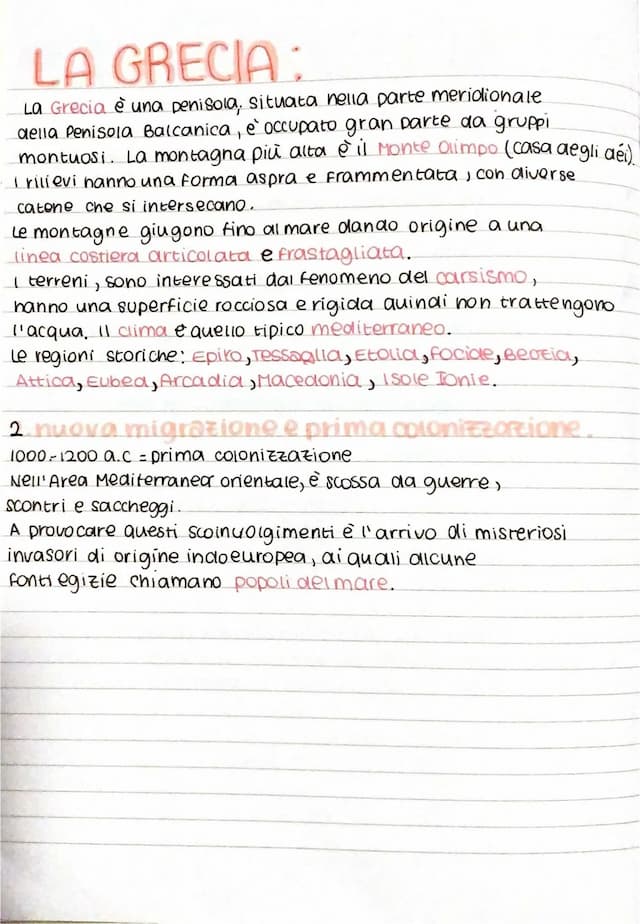 LA GRECIA:
La Grecia è una penisola, situata nella parte meridionale
della Penisola Balcanica, è occupato gran parte da gruppi
montuosi. La montagna più alta è il Monte Olimpo (casa degli déi).
I rilievi hanno una forma aspra e frammentata, con diverse
catene che si intersecano.
Le montagne giugono fino al mare dando origine a una
linea costiera articolata e frastagliata.
I terreni, sono interessati dal fenomeno del carsismo,
hanno una superficie rocciosa e rigida quindi non trattengono
l'acqua. Il clima è quello tipico mediterraneo.
Le regioni storiche: Epiro, Tessaglia, Etolia, Focide, Beozia,
Attica, Eubea, Arcadia, Macedonia, Isole Ionie.
2. nuova migrazione e prima colonizzazione.
1000-1200 a.c = prima colonizzazione
Nell'Area Mediterranea orientale, è scossa da guerre,
scontri e saccheggi.
A provocare questi scoinvolgimenti è l'arrivo di misteriosi
invasori di origine indoeuropea, ai quali alcune
fonti egizie chiamano popoli del mare.